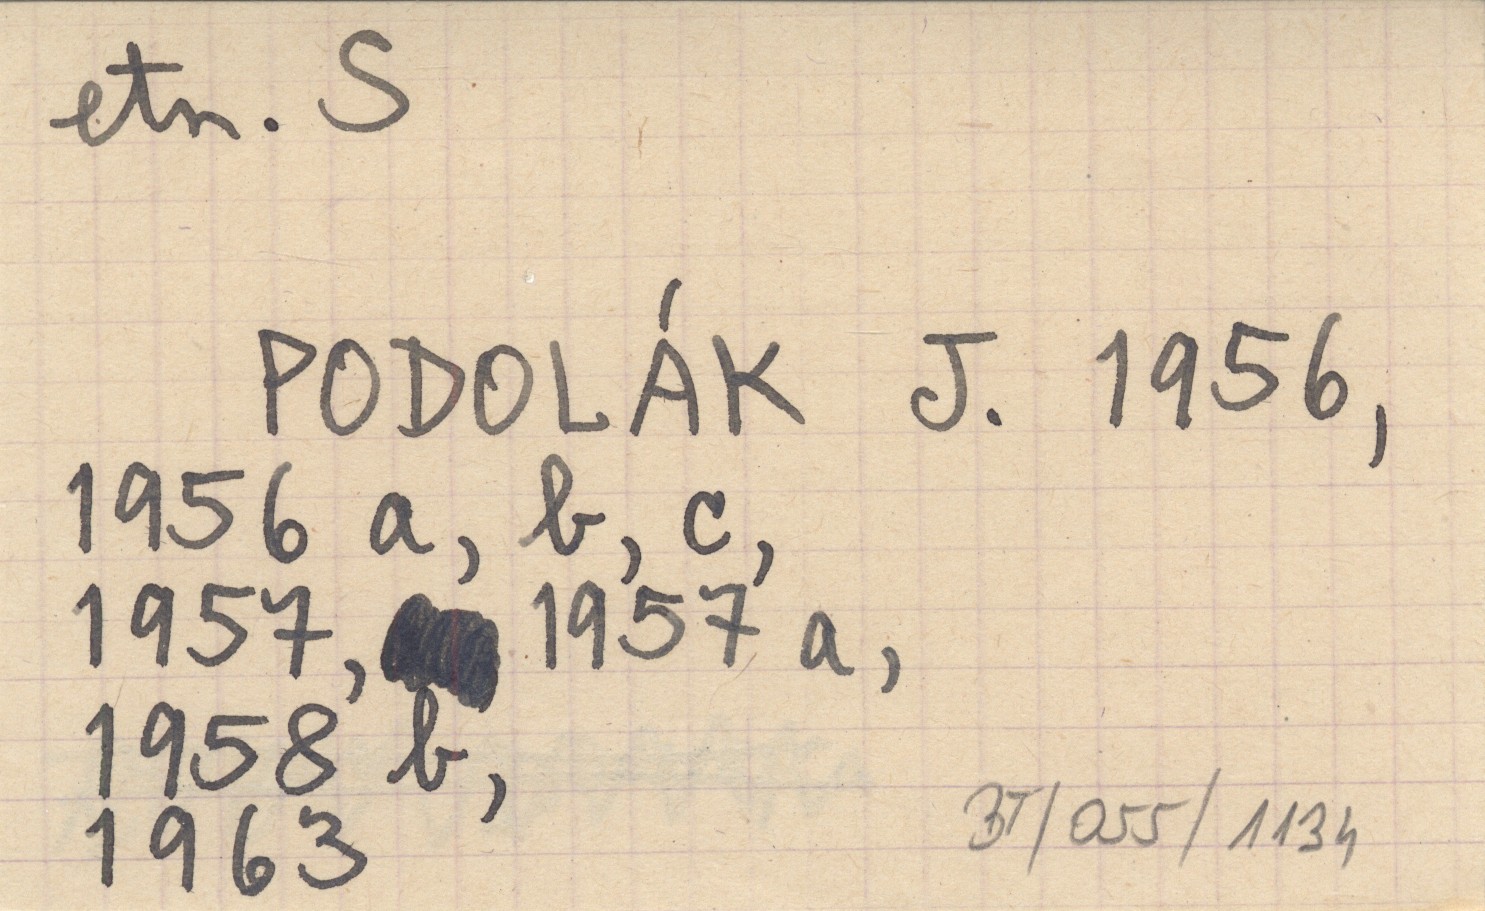 etn. S
PODOLÁK J. 1956,
1956 a, b, c,
1957, 1957 a,
1958 b,
1963
BT/055/1134